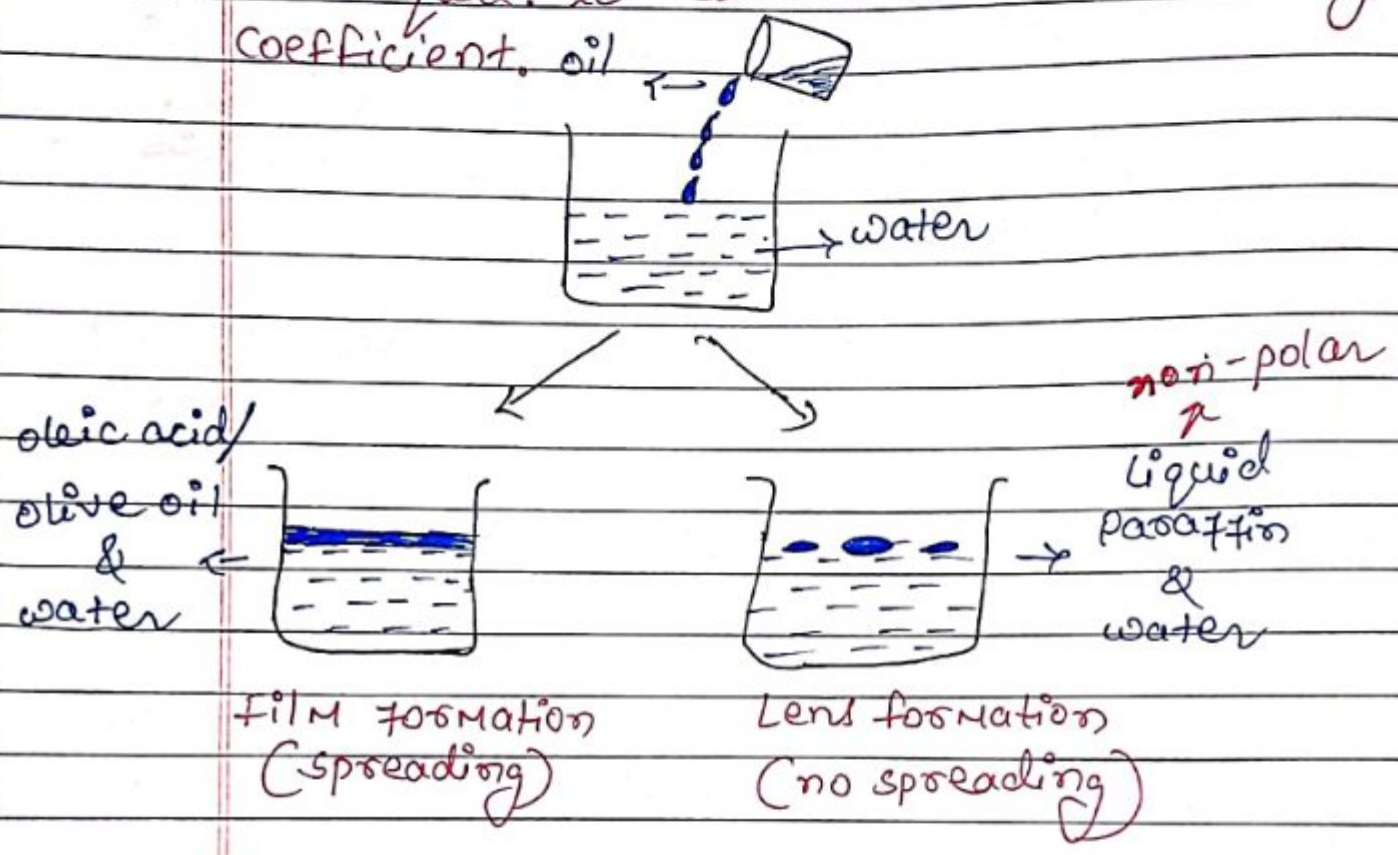 coefficient. oil
water
non-polar
oleic acid/
olive oil
&
water
Liquid
Paraffin
&
water
Film formation
(spreading)
Lens formation
(no spreading)